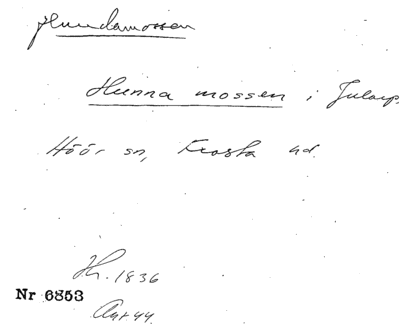 Hundamossen
Hunna mossen i Jularp,
Höör sn, Frosta hd.
Hh. 1836
Nr 6853